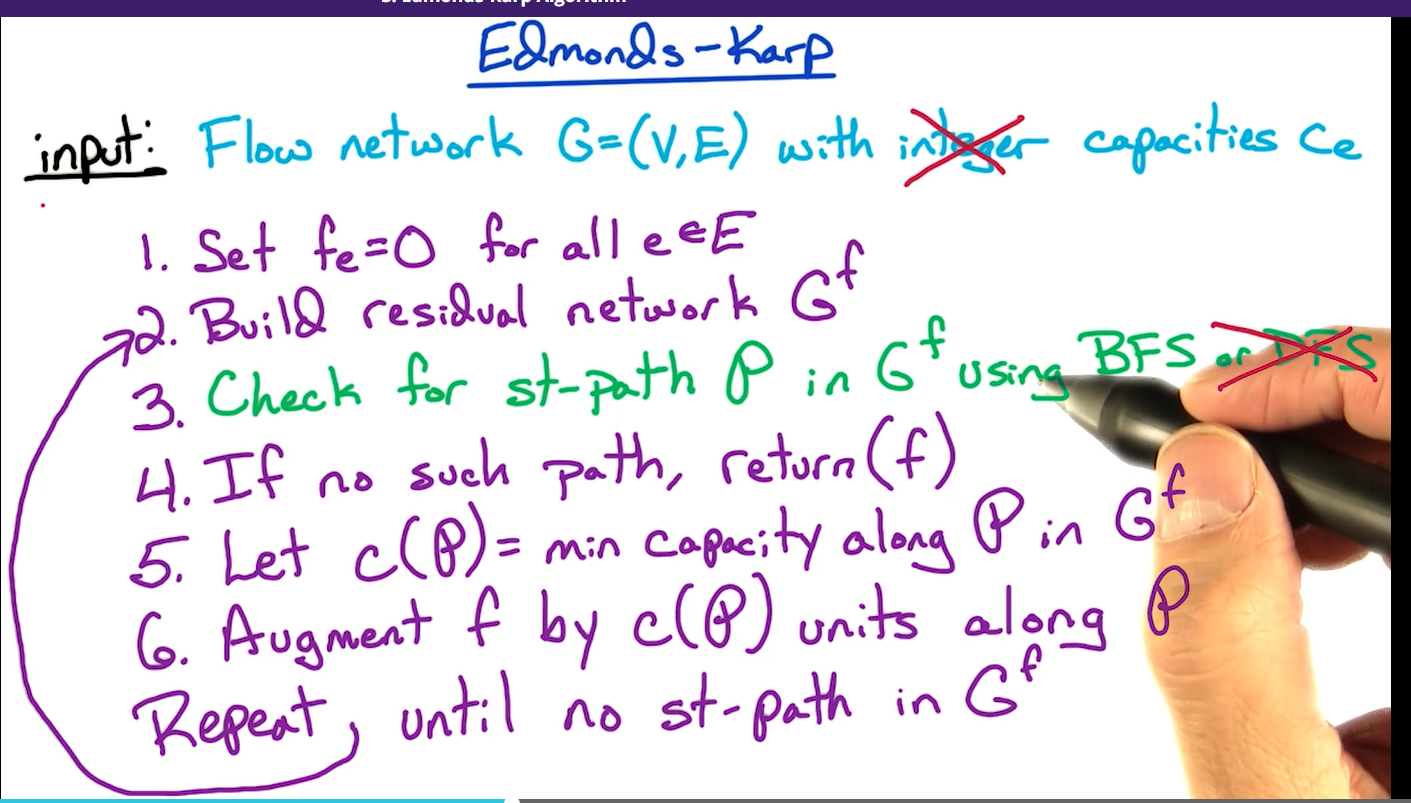 Edmonds-Karp
input: Flow network G=(V,E) with integer capacities Ce
1. Set fe=0 for all e∈E
2. Build residual network G^f
3. Check for st-path P in G^f using BFS or DFS
4. If no such path, return(f)
5. Let c(P)= min capacity along P in G^f
6. Augment f by c(P) units along P
Repeat, until no st-path in G^f